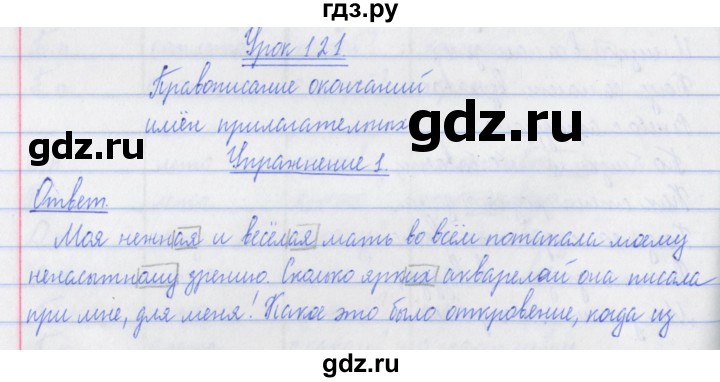 гдз.ру
Урок 121
Правописание окончаний
имён прилагательных
gdz.ru
Упражнение 1.
Ответ.
Моя нежная и весёлая мать во всём потакала моему
ненасытному зрению. Сколько ярких акварелей она писала
при мне, для меня! Какое это было откровение, когда из
gdz.ru
gdz.ru